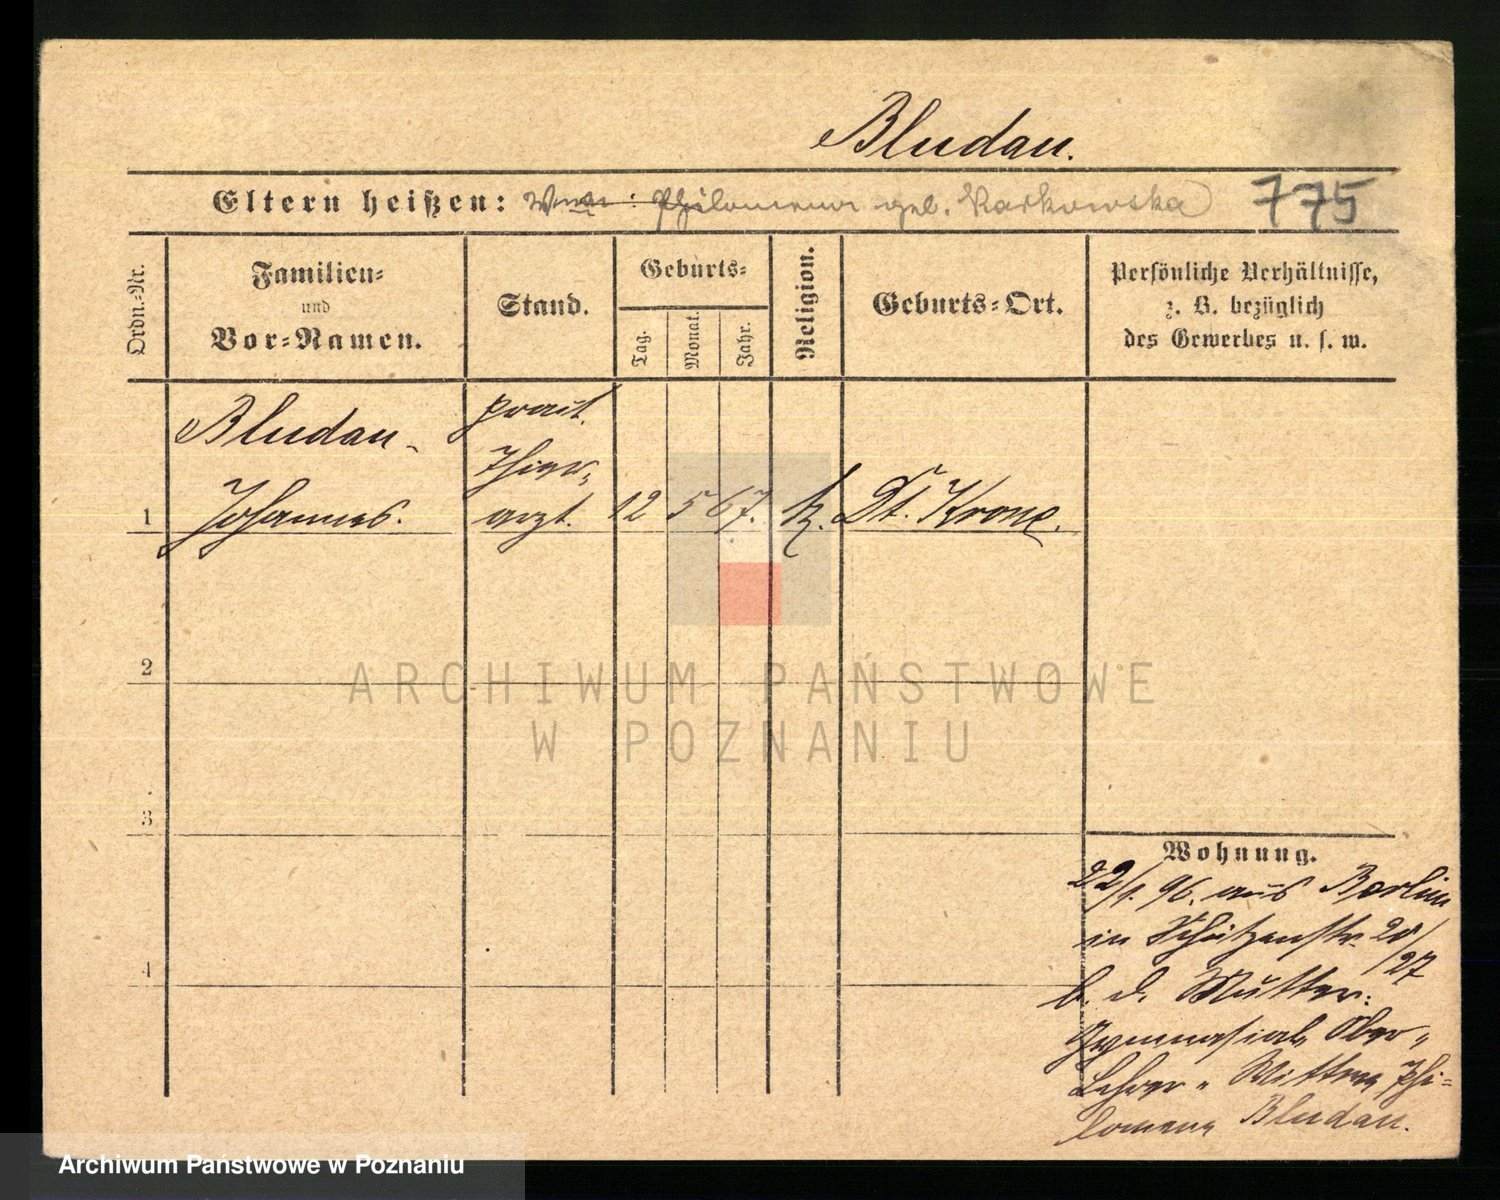 Bludau.
Eltern heißen: Philomena geb. Karkowska 775
Ordn.-Nr.
Familien-
und
Vor-Namen.
Stand.
Geburts-
Tag.
Monat.
Jahr.
Religion.
Geburts-Ort.
Persönliche Verhältnisse,
z. B. bezüglich
des Gewerbes u. s. w.
1
Bludau
Johannes.
pract.
Thier-
arzt.
12
5
67.
k.
Dt. Krone.
2
3
4
Wohnung.
22/1. 96. aus Berlin
in Schützenstr. 20/
27
b. d. Mutter:
Gymnasial Ober-
Lehrer-Wittwe Phi-
lomena Bludau.
ARCHIWUM PAŃSTWOWE
W POZNANIU
Archiwum Państwowe w Poznaniu